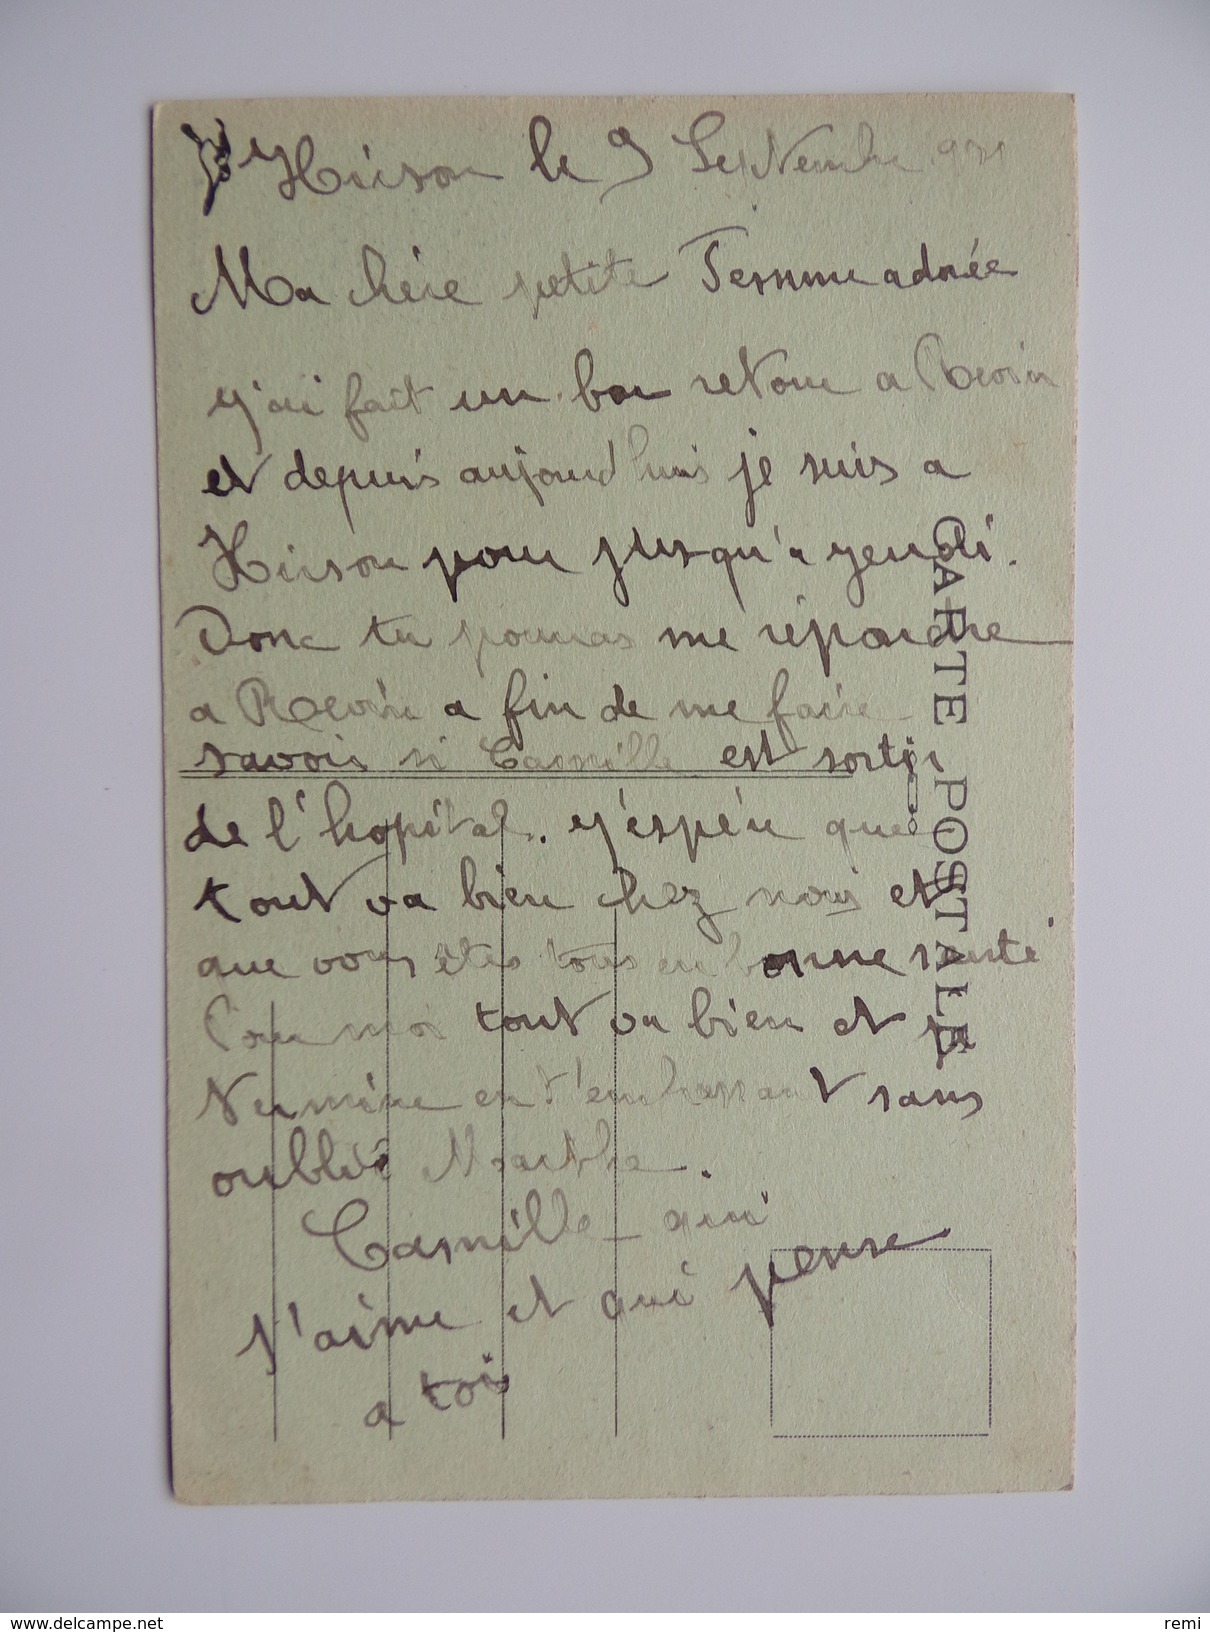 Hirson le 9 Septembre 931
Ma chère petite Femme adorée
j'ai fait un bon retour a Revin
et depuis aujourd'hui je suis a
Hirson pour jusqu'a jeudi.
Donc tu pourras me répondre
a Revin a fin de me faire
savoir si Camille est sortir
de l'hopital. j'espére que
tout va bien chez nous et
que vous êtes tous en bonne santé
Pour moi tout va bien et je
termine en t'embrassant sans
oublier Marthe.
Camille qui
t'aime et qui pense
a toi
CARTE POSTALE
delcampe.net
remi